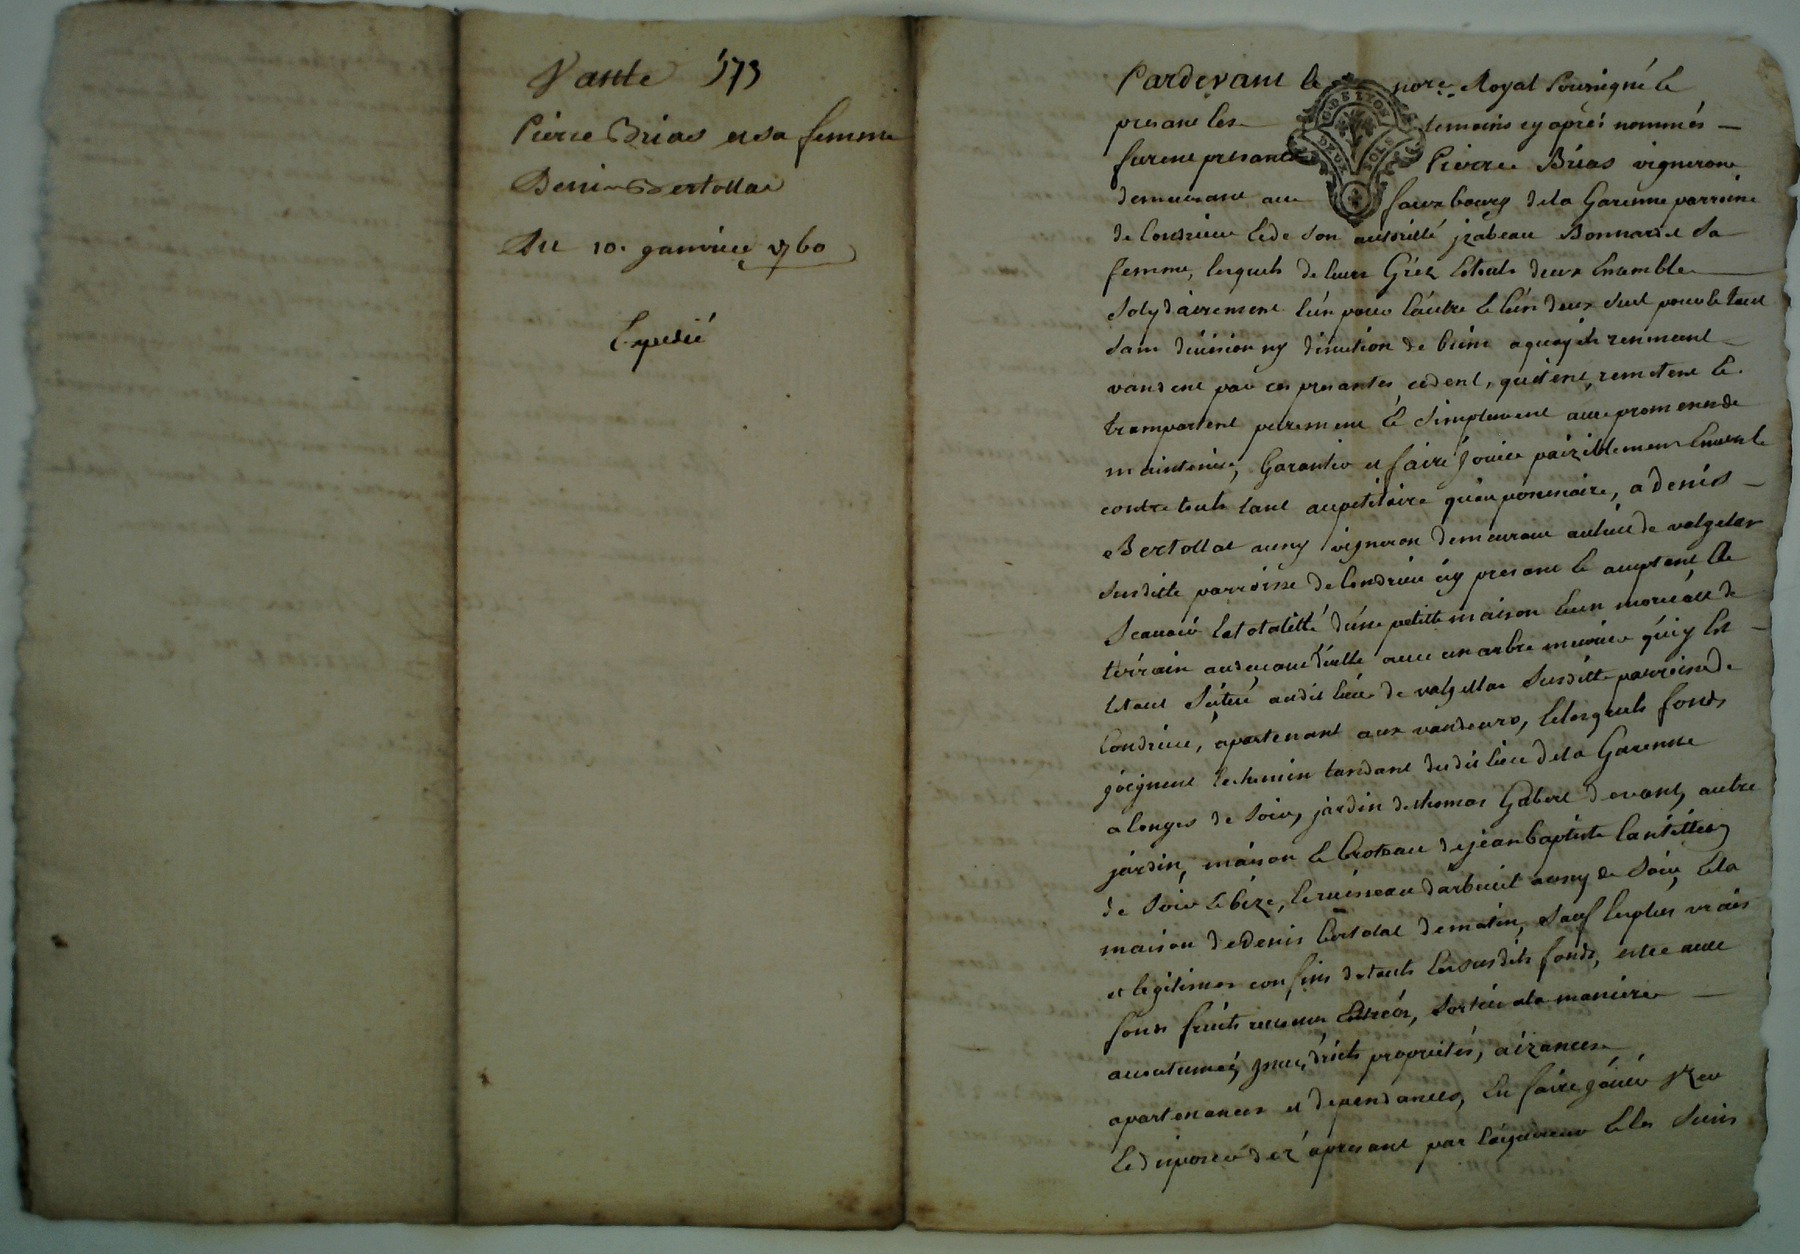 Vante 173
Pierre Brias et sa femme
Denis Bertollat
Du 10. janvier 1760
Expedié
Pardevant le nore. Royal soussigné le
presant les temoins cy après nommés
furent presants Pierre Brias vigneron
demeurant au fauxbourg dela Garenne parroisse
de Condrieu & de son authorité jzabeau Bonnard sa
femme, lesquels de leurs Gréz & touts deux Enssemble
solydairement l'un pour l'autre & l'un deux seul pour le tout
sans division ny discution de biens a quoy ils renoncent
vandent par ces presantes, cedent, quittent, remettent &
transportent purement & simplement avec promesse de
maintenir, Garantir et faire jouir paiziblement Envers &
contre touts tant au petitoire qu'au possessoire, a denis
Bertollat aussy vigneron demeurant au lieu de valgelas
susditte parroisse de Condrieu icy presant & acceptant
Scauoir la totalitté d'une petitte maison & un morceau de
térrain au devant d'icelle avec un arbre meurier qui y Est
Estant sçitué audit lieu de valgellas susditte parroisse de
Condrieu, apartenant aux vandeurs, & lesquels fonds
joignent le chemin tandant dudit lieu dela Garenne
a longes de soir, jardin de thomas Gabert devant, autre
jardin, maison & broteau de jean baptiste
de soir & bize, le ruisseau d'arbuel aussy de soir, & la
maison de denis bertolat de matin, sauf les plus vrais
et legitimes confins de touts les susdits fonds, estre avec
leurs fruits entréés, sorties a la maniere
accoutumeé, droits proprietés, aizances
apartenances et dependances, En faire jouir jzer
& disposer dez a presant par l'aquereur & les siens